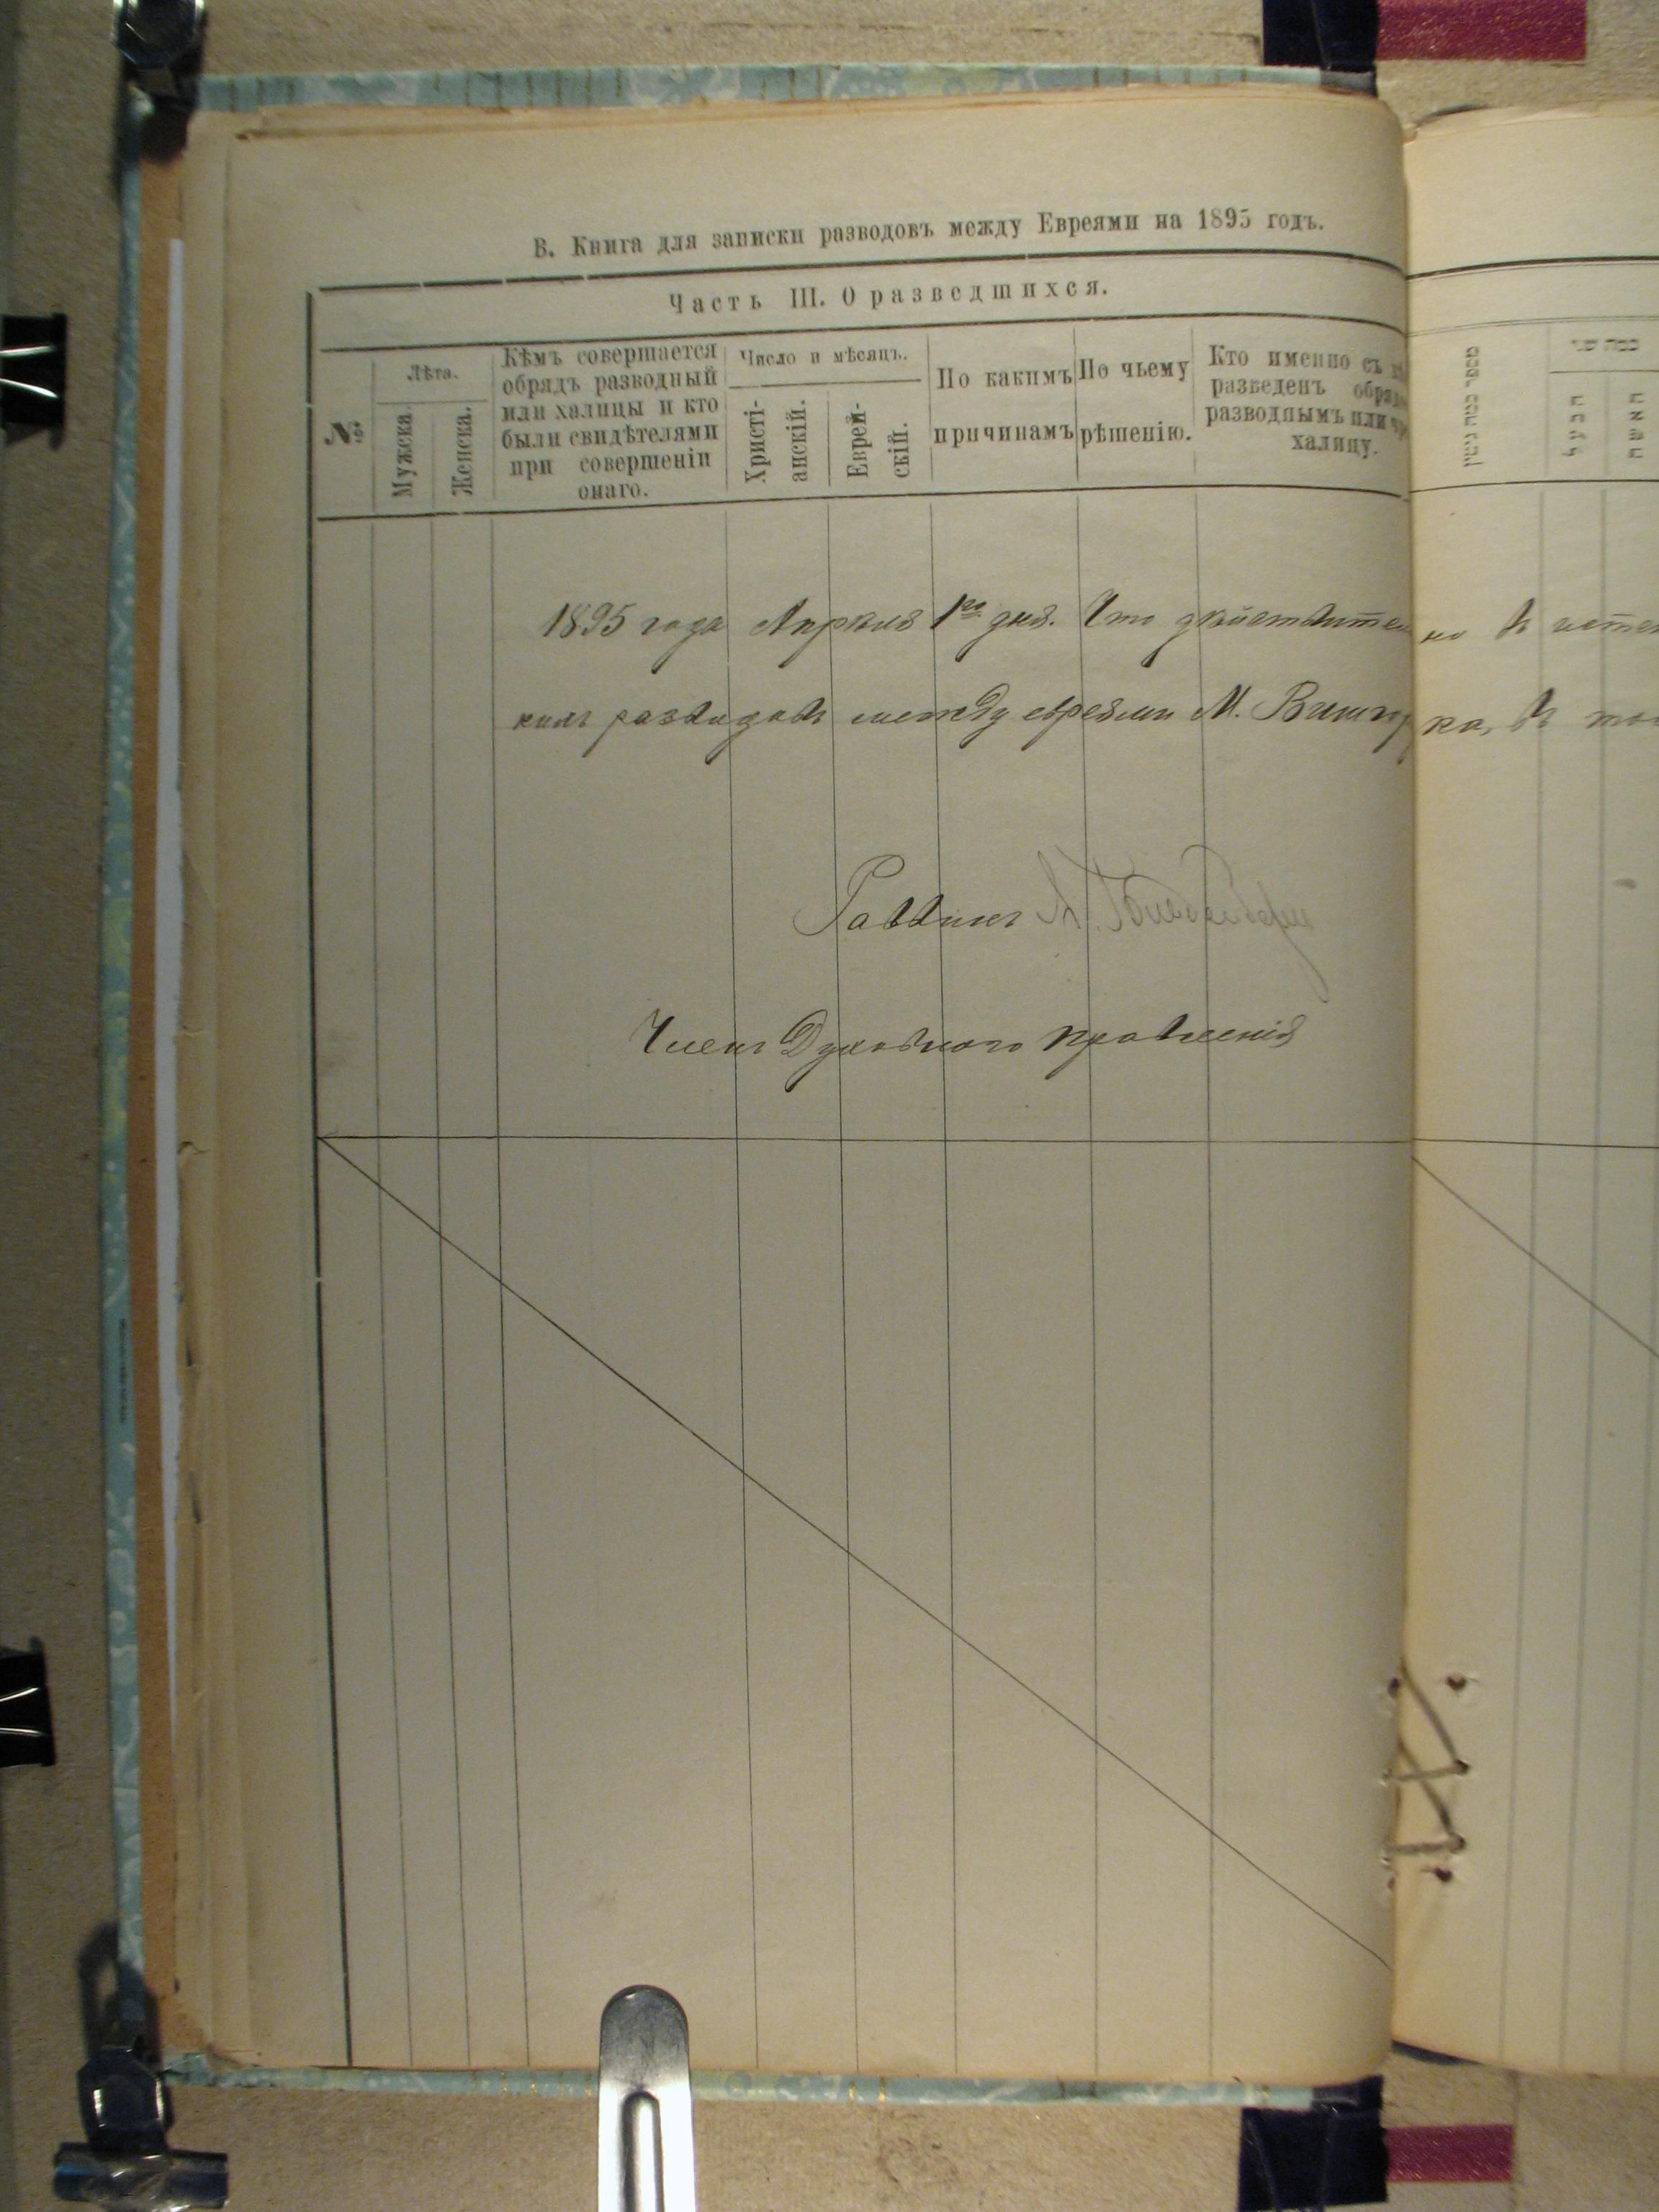 В. Книга для записки разводовъ между Евреями на 1895 годъ.
Часть III. О разведшихся.
№
Лѣта.
Мужска.
Женска.
Кѣмъ совершается
обрядъ разводный
или халицы и кто
были свидѣтелями
при совершеніи
онаго.
Число и мѣсяцъ.
Христі-
анскій.
Еврей-
скій.
По какимъ
причинамъ
По чьему
рѣшенію.
Кто именно съ
разведенъ
разводнымъ или
халицу.
הבעל
האשה
1895 года Апрѣля 1го дня. Что дѣйствител но въ истек
кихъ разводовъ между евреями М. Вишгор ка, въ
Раввинъ
Членъ Духовнаго правленія